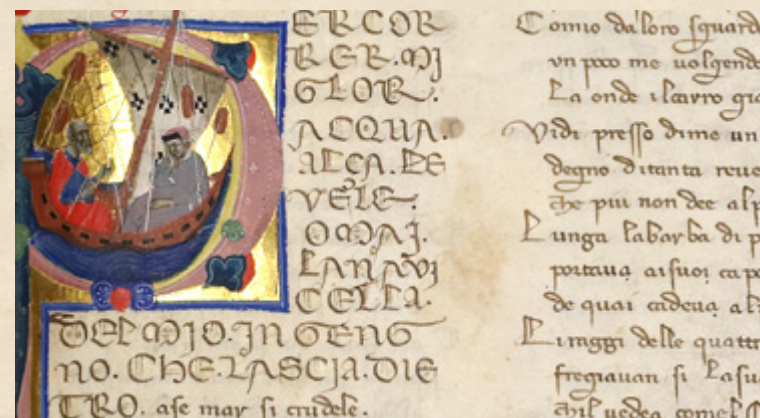 ER COR
RER.MJ
GLOR.
ACQUA.
ALÇA.LE
VELE.
OMAJ.
LANAVI
CELLA.
DEL MJO.JNGENG
NO. CHE.LASCJA.DIE
TRO. ase mar si crudele.
Comio da loro sguardo
vn poco me uolgendo
La onde ilcarro gia
Vidi presso dime un
degno ditanta reue
che piu non dee alp
Lunga labarba di p
portaua aisuoi cap
de quai cadeua al
Li raggi delle quatt
fregiauan si Lasu